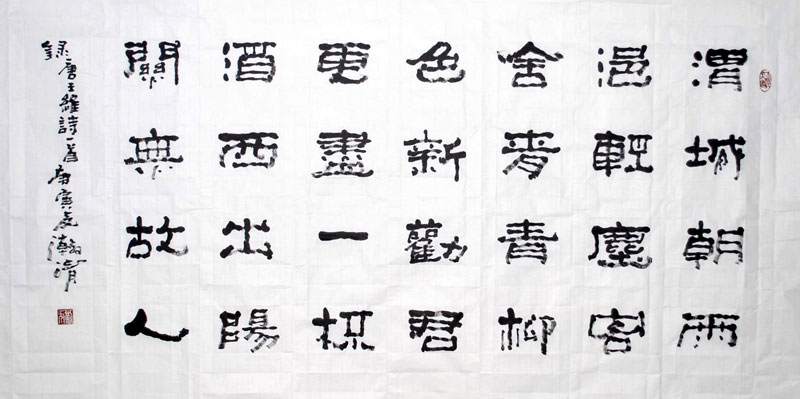 渭城朝雨
浥輕塵客
舍青青柳
色新勸君
更盡一杯
酒西出陽
關無故人
錄唐王維詩一首庚寅夏瀚